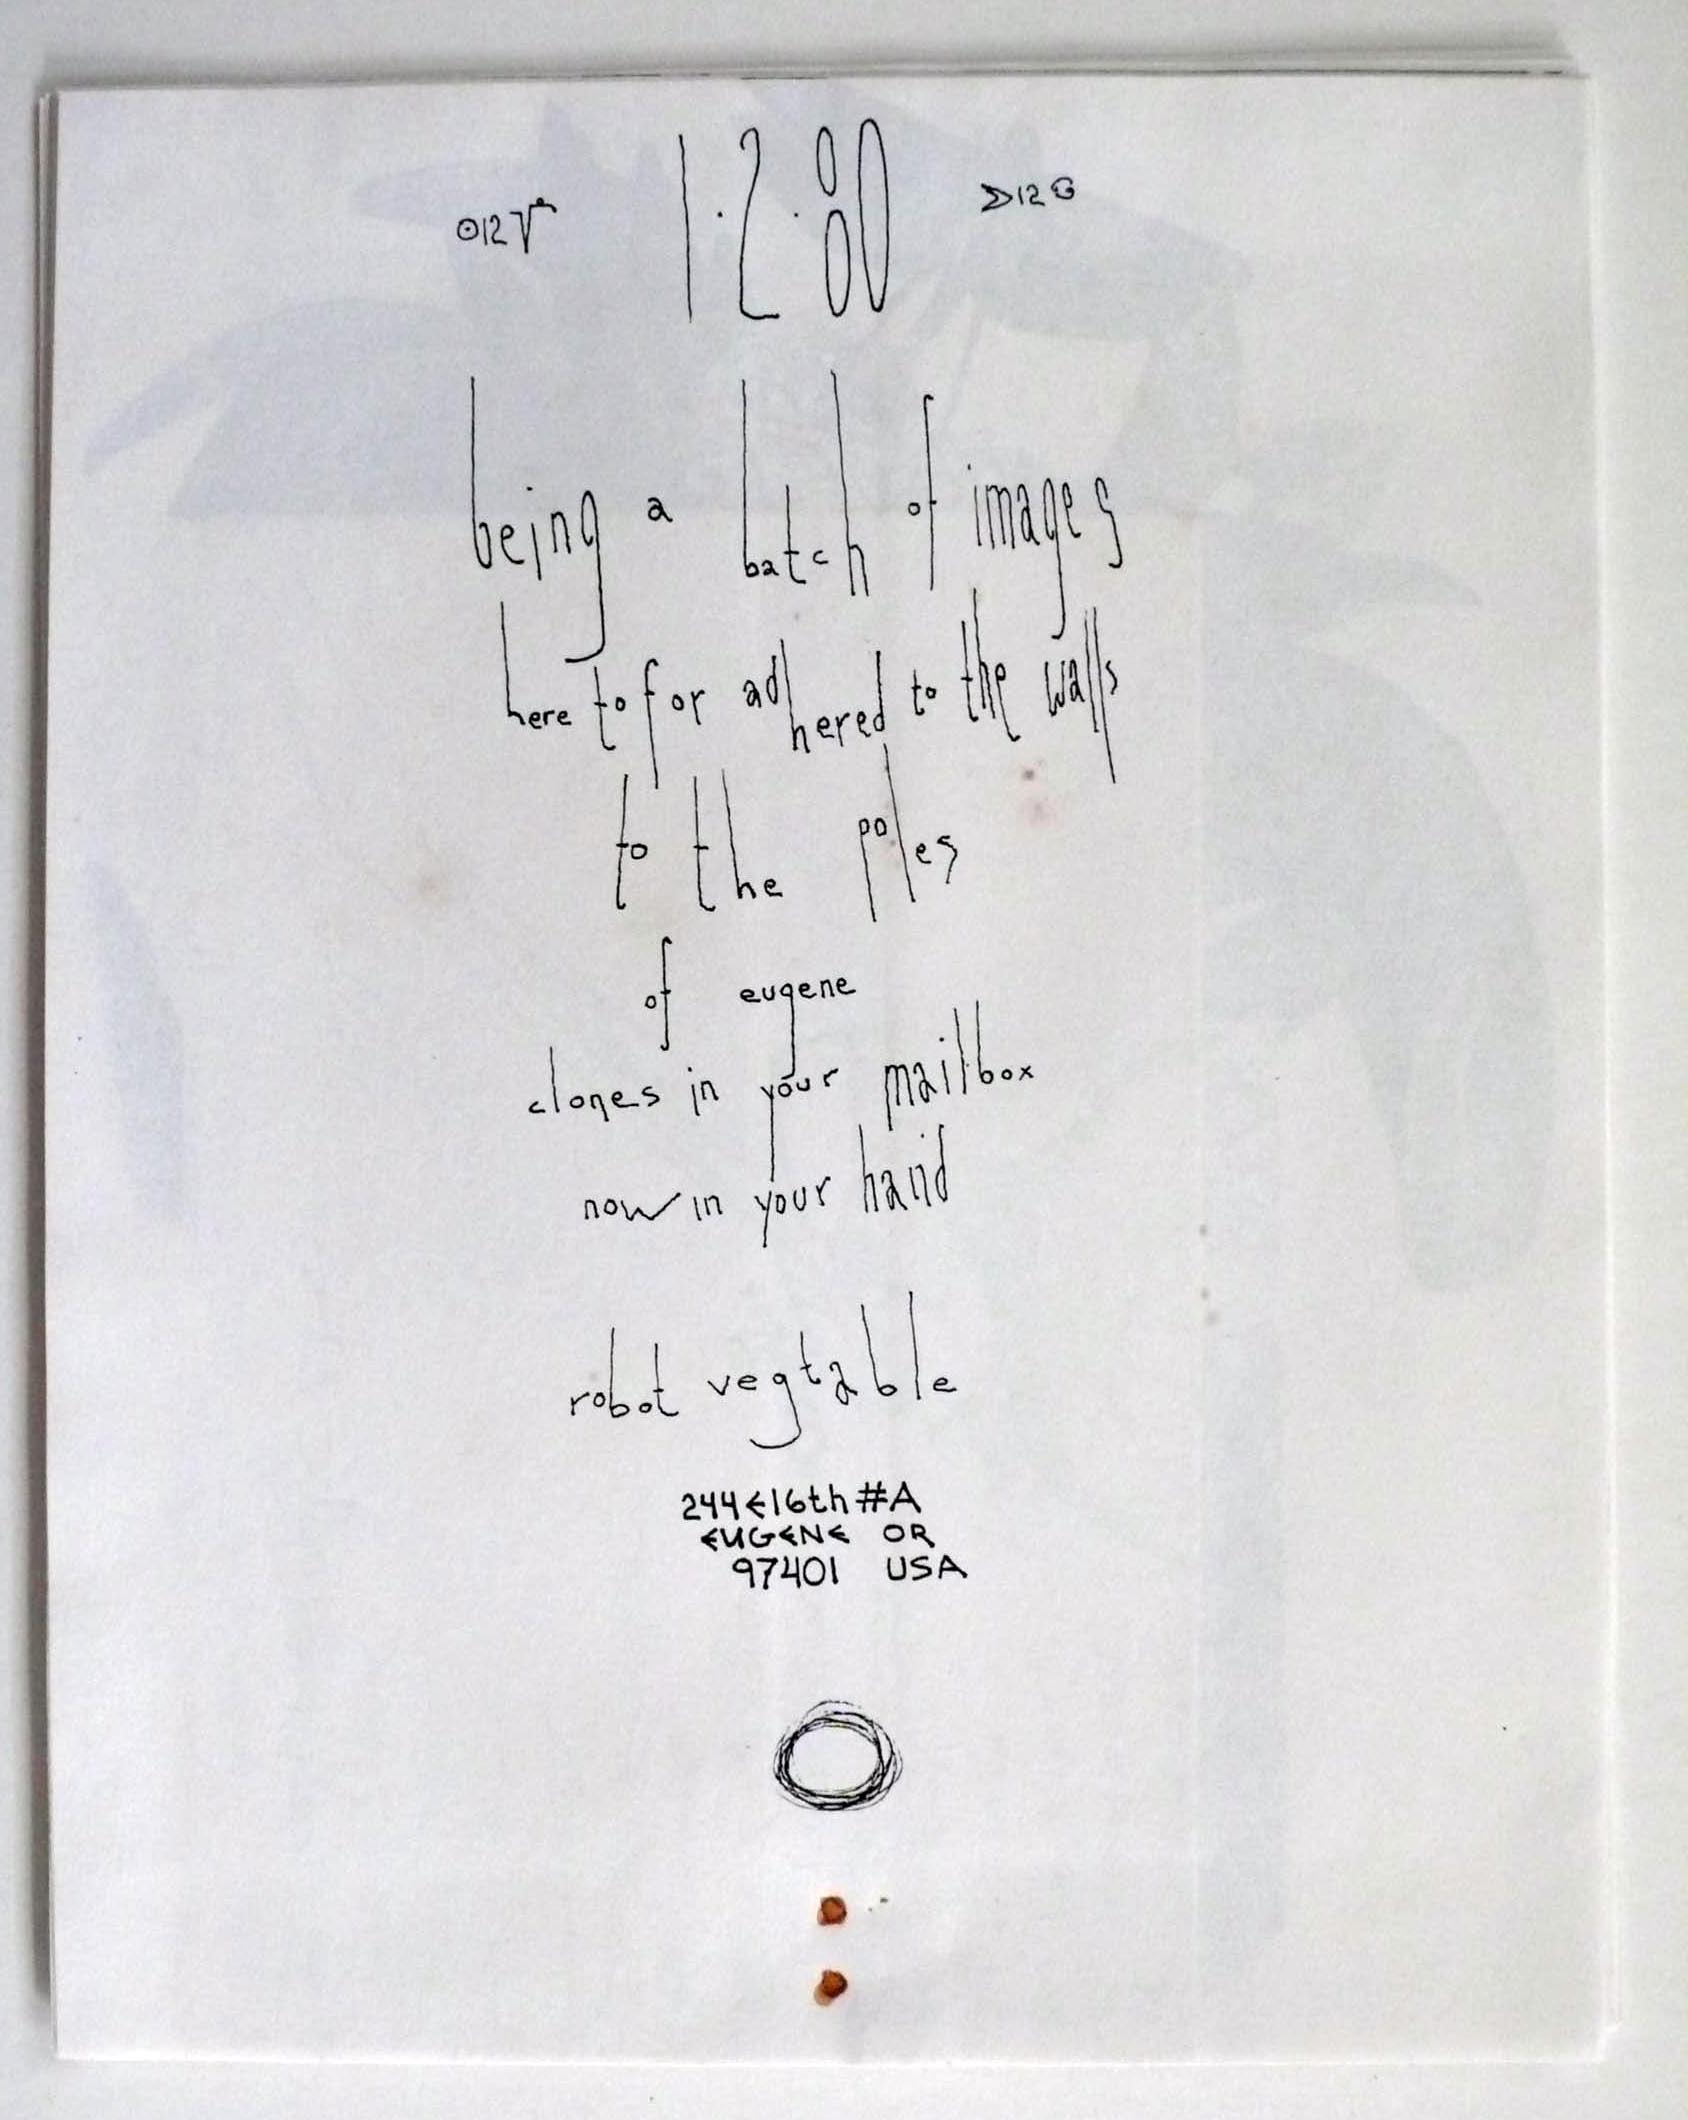 ⊙12 1·2·80 12
being a batch of images
here to for adhered to the walls
to the poles
of eugene
clones in your mailbox
now in your hand
robot vegtable
244E16th#A
EUGENE OR
97401 USA